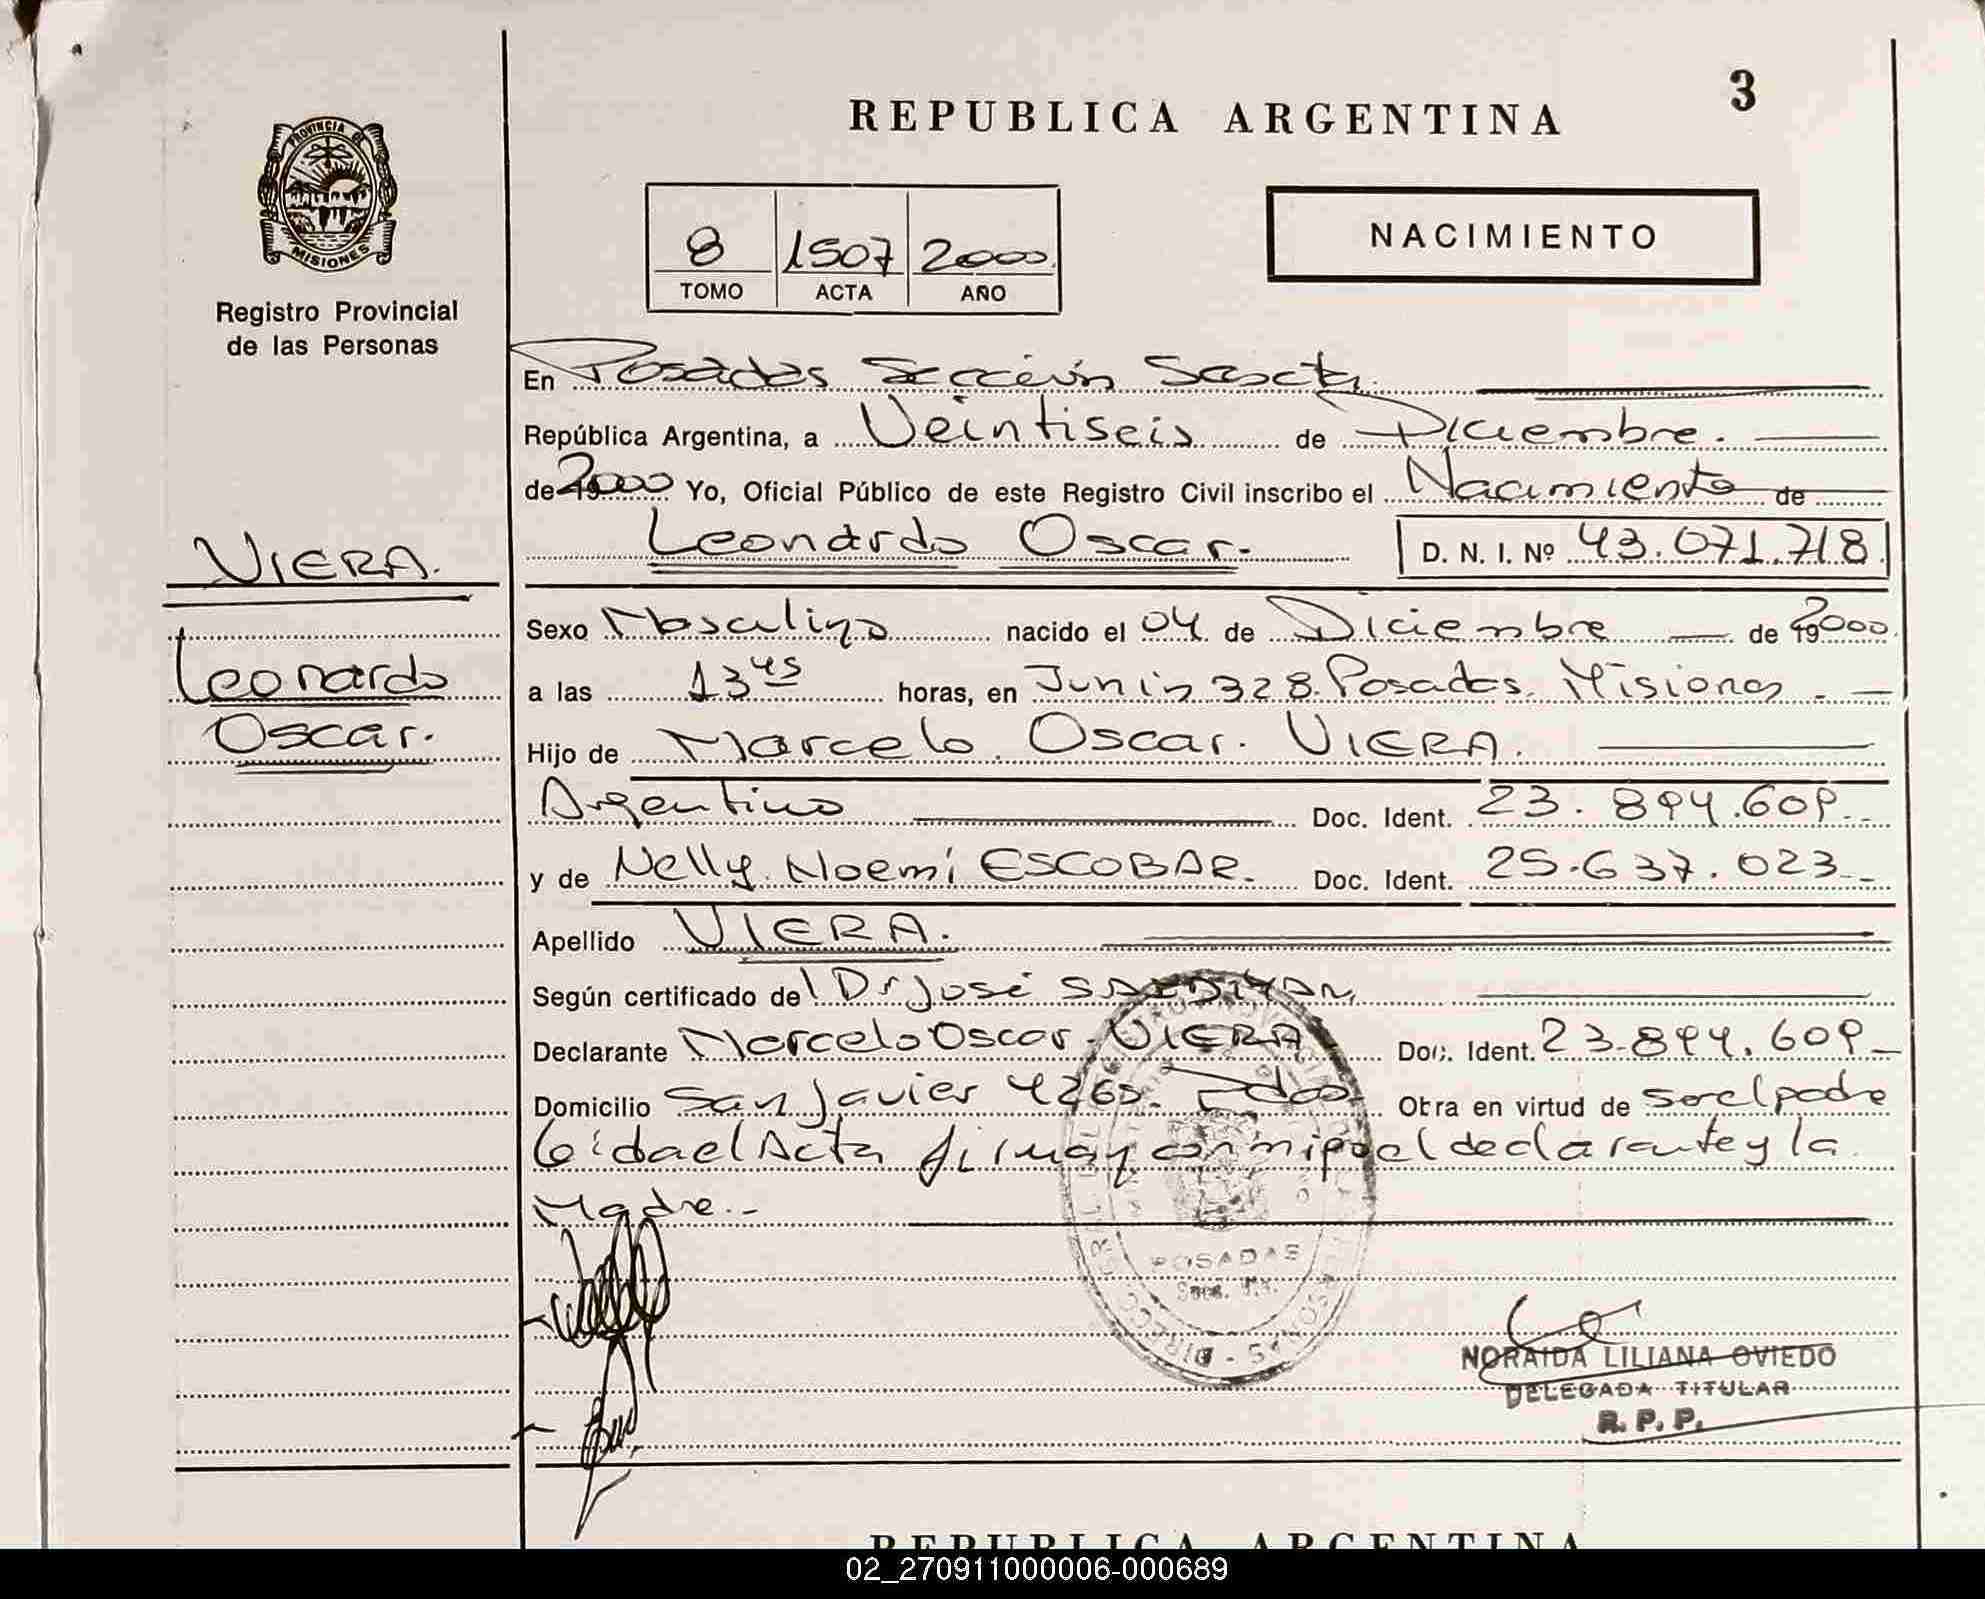 3
REPUBLICA ARGENTINA
PROVINCIA DE
MISIONES
Registro Provincial
de las Personas
8 1507 2000
TOMO ACTA AÑO
NACIMIENTO
En Posadas Sección Sexta
República Argentina, a Veintiseis de Diciembre.
de 2000 Yo, Oficial Público de este Registro Civil inscribo el Nacimiento de
Leonardo Oscar.- D. N. I. Nº 43.071.718
VIERA.
Leonardo
Oscar.
Sexo Masculino nacido el 04 de Diciembre de 2000
a las 13 45 horas, en Junin 328. Posadas. Misiones.-
Hijo de Marcelo Oscar. VIERA.
Argentino Doc. Ident. 23.894.609.-
y de Nelly Noemí ESCOBAR. Doc. Ident. 25.637.023.-
Apellido VIERA.
Según certificado del Dr José
Declarante Marcelo Oscar VIERA Doc. Ident. 23.894.609.-
Domicilio San Javier 4260. Pdas. Obra en virtud de ser el padre
leída el Acta firman conmigo el declarante y la
Madre.-
POSADAS
NORAIDA LILIANA OVIEDO
DELEGADA TITULAR
R. P. P.
REPUBLICA ARGENTINA
02_270911000006-000689